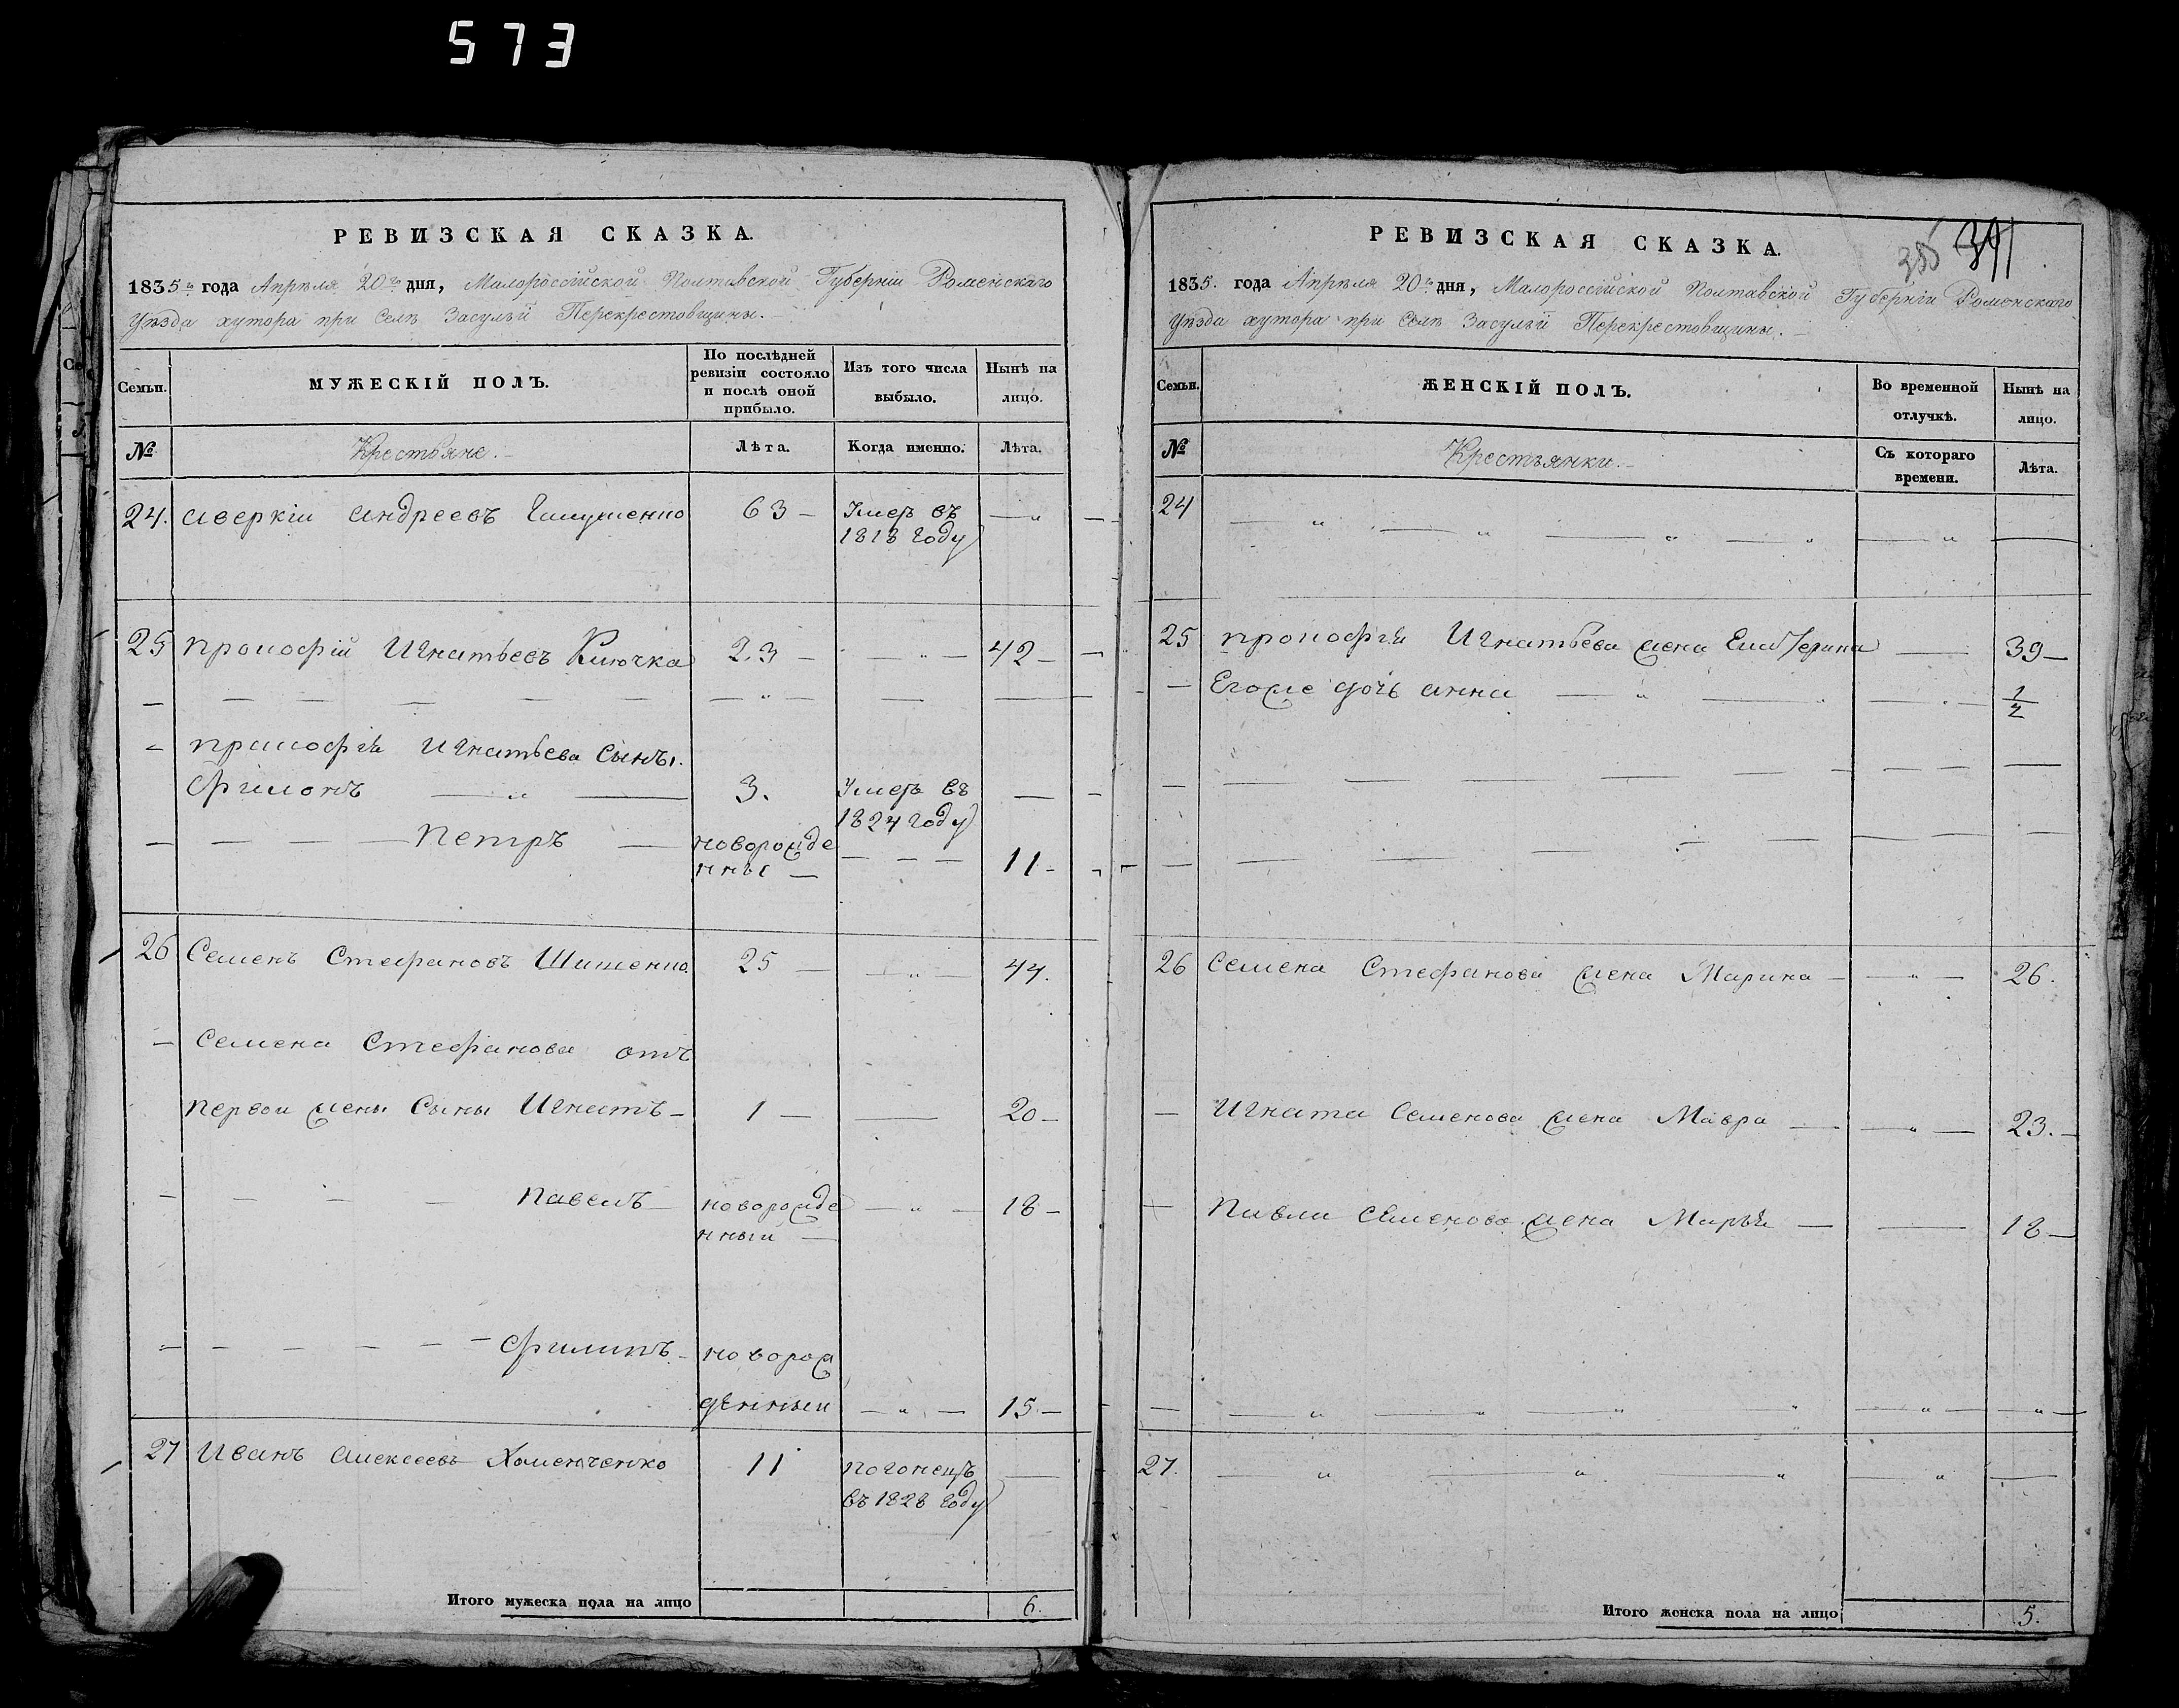 573
РЕВИЗСКАЯ СКАЗКА.
1835 го года Апрѣля 20 го дня, Малороссійской Полтавской Губерніи Роменскаго
Уѣзда хутора при Селѣ Засульи Перекрестовщины.
Семьи.
МУЖЕСКІЙ ПОЛЪ.
По послѣдней ревизіи состояло и послѣ оной прибыло.
Изъ того числа выбыло.
Нынѣ на лицо.
№
Крестьяне.
Лѣта.
Когда именно.
Лѣта.
24. аверкіи андреевъ 63 — Умеръ въ
1818 году
25 прокофій Игнатьевъ Ключка 23 — 42 —
прокофія Игнатьева сынъ
Филонъ 3. Умеръ въ
1824 году
Петръ новорожде
нны 11 —
26 Семенъ Стефановъ Шишенко 25 — 44.
Семена Стефанова отъ
первои жены Сыны Игнатъ — 1 — 20 —
павелъ новорожде
нныи — 18 —
Филипъ новорож
денныи 15 —
27 Иванъ алексеевъ Хоменченко 11
въ 1828 году
Итого мужеска пола на лицо 6.
РЕВИЗСКАЯ СКАЗКА.
391
1835. года Апрѣля 20 го дня, Малороссійской Полтавской Губерніи Роменскаго
Уѣзда хутора при Селѣ Засульи Перекрестовщины.
Семьи.
ЖЕНСКІЙ ПОЛЪ.
Во временной отлучкѣ.
Нынѣ на лицо.
№
Крестьянки.
Съ котораго времени.
Лѣта.
24
25 прокофія Игнатьева жена 39 —
Егоже дочь анна 1/2
26 Семена Стефанова жена Марина — 26.
Игната Семенова жена Мавра 23. —
Павла Семенова жена Марья — 18 —
27.
Итого женска пола на лицо 5.